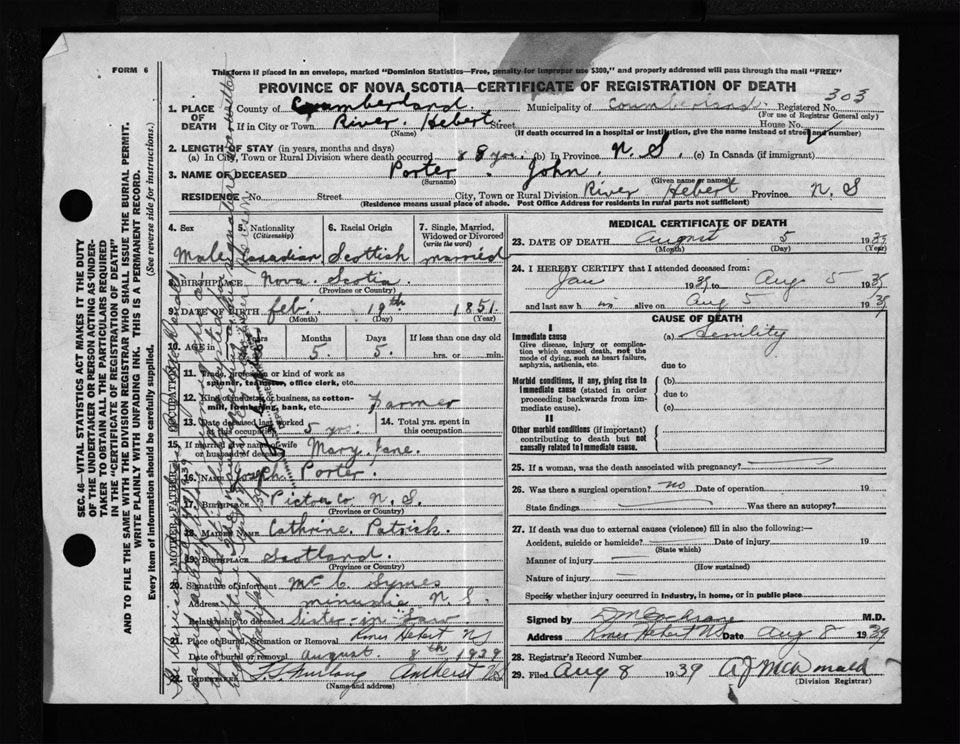 FORM 6
This form if placed in an envelope, marked "Dominion Statistics—Free, penalty for improper use $300," and properly addressed will pass through the mail "FREE"
PROVINCE OF NOVA SCOTIA—CERTIFICATE OF REGISTRATION OF DEATH
303
1. PLACE OF DEATH County of Cumberland. Municipality of Coumberland. Registered No.
(For use of Registrar General only)
If in City or Town River Hebert. Street House No.
(Name) (If death occurred in a hospital or institution, give the name instead of street and number)
2. LENGTH OF STAY (in years, months and days)
(a) In City, Town or Rural Division where death occurred 88 yrs. (b) In Province N. S. (c) In Canada (if immigrant)
3. NAME OF DECEASED Porter. John.
(Surname) (Given name or names)
RESIDENCE No. Street City, Town or Rural Division River Hebert Province N. S
(Residence means usual place of abode. Post Office Address for residents in rural parts not sufficient)
SEC. 46—VITAL STATISTICS ACT MAKES IT THE DUTY
OF THE UNDERTAKER OR PERSON ACTING AS UNDER-
TAKER TO OBTAIN ALL THE PARTICULARS REQUIRED
IN THE "CERTIFICATE OF REGISTRATION OF DEATH"
AND TO FILE THE SAME WITH THE DIVISION REGISTRAR WHO SHALL ISSUE THE BURIAL PERMIT.
WRITE PLAINLY WITH UNFADING INK. THIS IS A PERMANENT RECORD.
Every item of information should be carefully supplied. (See reverse side for instructions.)
4. Sex Nationality (Citizenship) 6. Racial Origin 7. Single, Married, Widowed or Divorced (write the word)
Male Canadian Scottish married
BIRTHPLACE Nova Scotia
(Province or Country)
9. DATE OF BIRTH feb. 19th 1851
(Month) (Day) (Year)
10. AGE in Years Months Days If less than one day
5. 5. hrs. or min.
11. Trade, profession or kind of work as spinner, teamster, office clerk, etc.
12. Kind of industry or business, as cotton-mill, lumbering, bank, etc. Farmer
13. Date deceased last worked at this occupation 5 yrs. 14. Total yrs. spent in this occupation
15. If married give name of wife or husband of deceased Mary Jane.
16. NAME Joseph Porter.
17. BIRTHPLACE Pictou Co N. S.
(Province or Country)
18. MAIDEN NAME Cathrine Patrick.
19. BIRTHPLACE Scotland.
(Province or Country)
20. Signature of informant Mc C. Symes
Address minudie N. S.
Relationship to deceased Sister-in-Law
21. Place of Burial, Cremation or Removal River Hebert NS
Date of burial or removal August 8th 1939
22. UNDERTAKER Furlong Amherst NS
(Name and address)
MEDICAL CERTIFICATE OF DEATH
23. DATE OF DEATH August 5 1939
(Month) (Day) (Year)
24. I HEREBY CERTIFY that I attended deceased from:
Jan 1939 to Aug 5 1939
and last saw him alive on Aug 5 1939
CAUSE OF DEATH
I
Immediate cause (a) Senility
Give disease, injury or complication which caused death, not the mode of dying, such as heart failure, asphyxia, asthenia, etc.
due to
Morbid conditions, if any, giving rise to immediate cause (stated in order proceeding backwards from immediate cause).
(b)
due to
(c)
II
Other morbid conditions (if important) contributing to death but not causally related to immediate cause.
25. If a woman, was the death associated with pregnancy?
26. Was there a surgical operation? no Date of operation 19
State findings Was there an autopsy?
27. If death was due to external causes (violence) fill in also the following:—
Accident, suicide or homicide? Date of injury 19
(State which)
Manner of injury
(How sustained)
Nature of injury
Specify whether injury occurred in industry, in home, or in public place
Signed by Cochrane M.D.
Address River Hebert NS Date Aug 8 1939
28. Registrar's Record Number
29. Filed Aug 8 1939 A J McDonald
(Division Registrar)